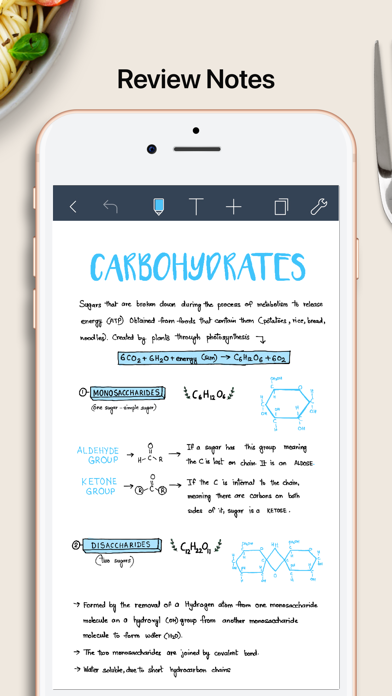 Review Notes
CARBOHYDRATES
Sugars that are broken down during the process of metabolism to release
energy (ATP) Obtained from foods that contain them (potatoes, rice, bread,
noodles). Created by plants through photosynthesis
6CO2 + 6H2O + energy (sun) → C6H12O6 + 6O2
1 MONOSACCHARIDES C6H12O6
(one sugar - simple sugar)
ALDEHYDE GROUP → → If a sugar has this group meaning
the C is last on chain It is an ALDOSE.
KETONE GROUP → → If the C is internal to the chain,
meaning there are carbons on both
sides of it, sugar is a KETOSE.
2 DISACCHARIDES C12H22O11
(two sugars)
→ Formed by the removal of a Hydrogen atom from one monosaccharide
molecule an a hydroxyl (OH) group from another monosaccharide
molecule to form water (H2O).
→ The two monosaccharides are joined by covalent bond.
→ Water soluble, due to short hydrocarbon chains